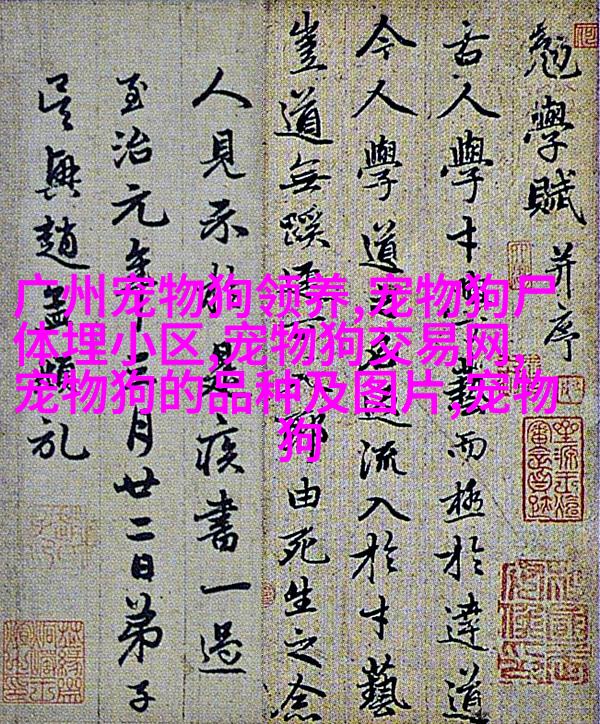 广州宠物狗领养,宠物狗尸
体埋小区,宠物狗交易网,
宠物狗的品种及图片,宠物
狗
勉學賦并序
古人學藝而極於達道
今人學道流入於才藝
豈道無蹊由死生之念
人見示疾書一過
至治元年月廿二日弟子
吳興趙孟頫